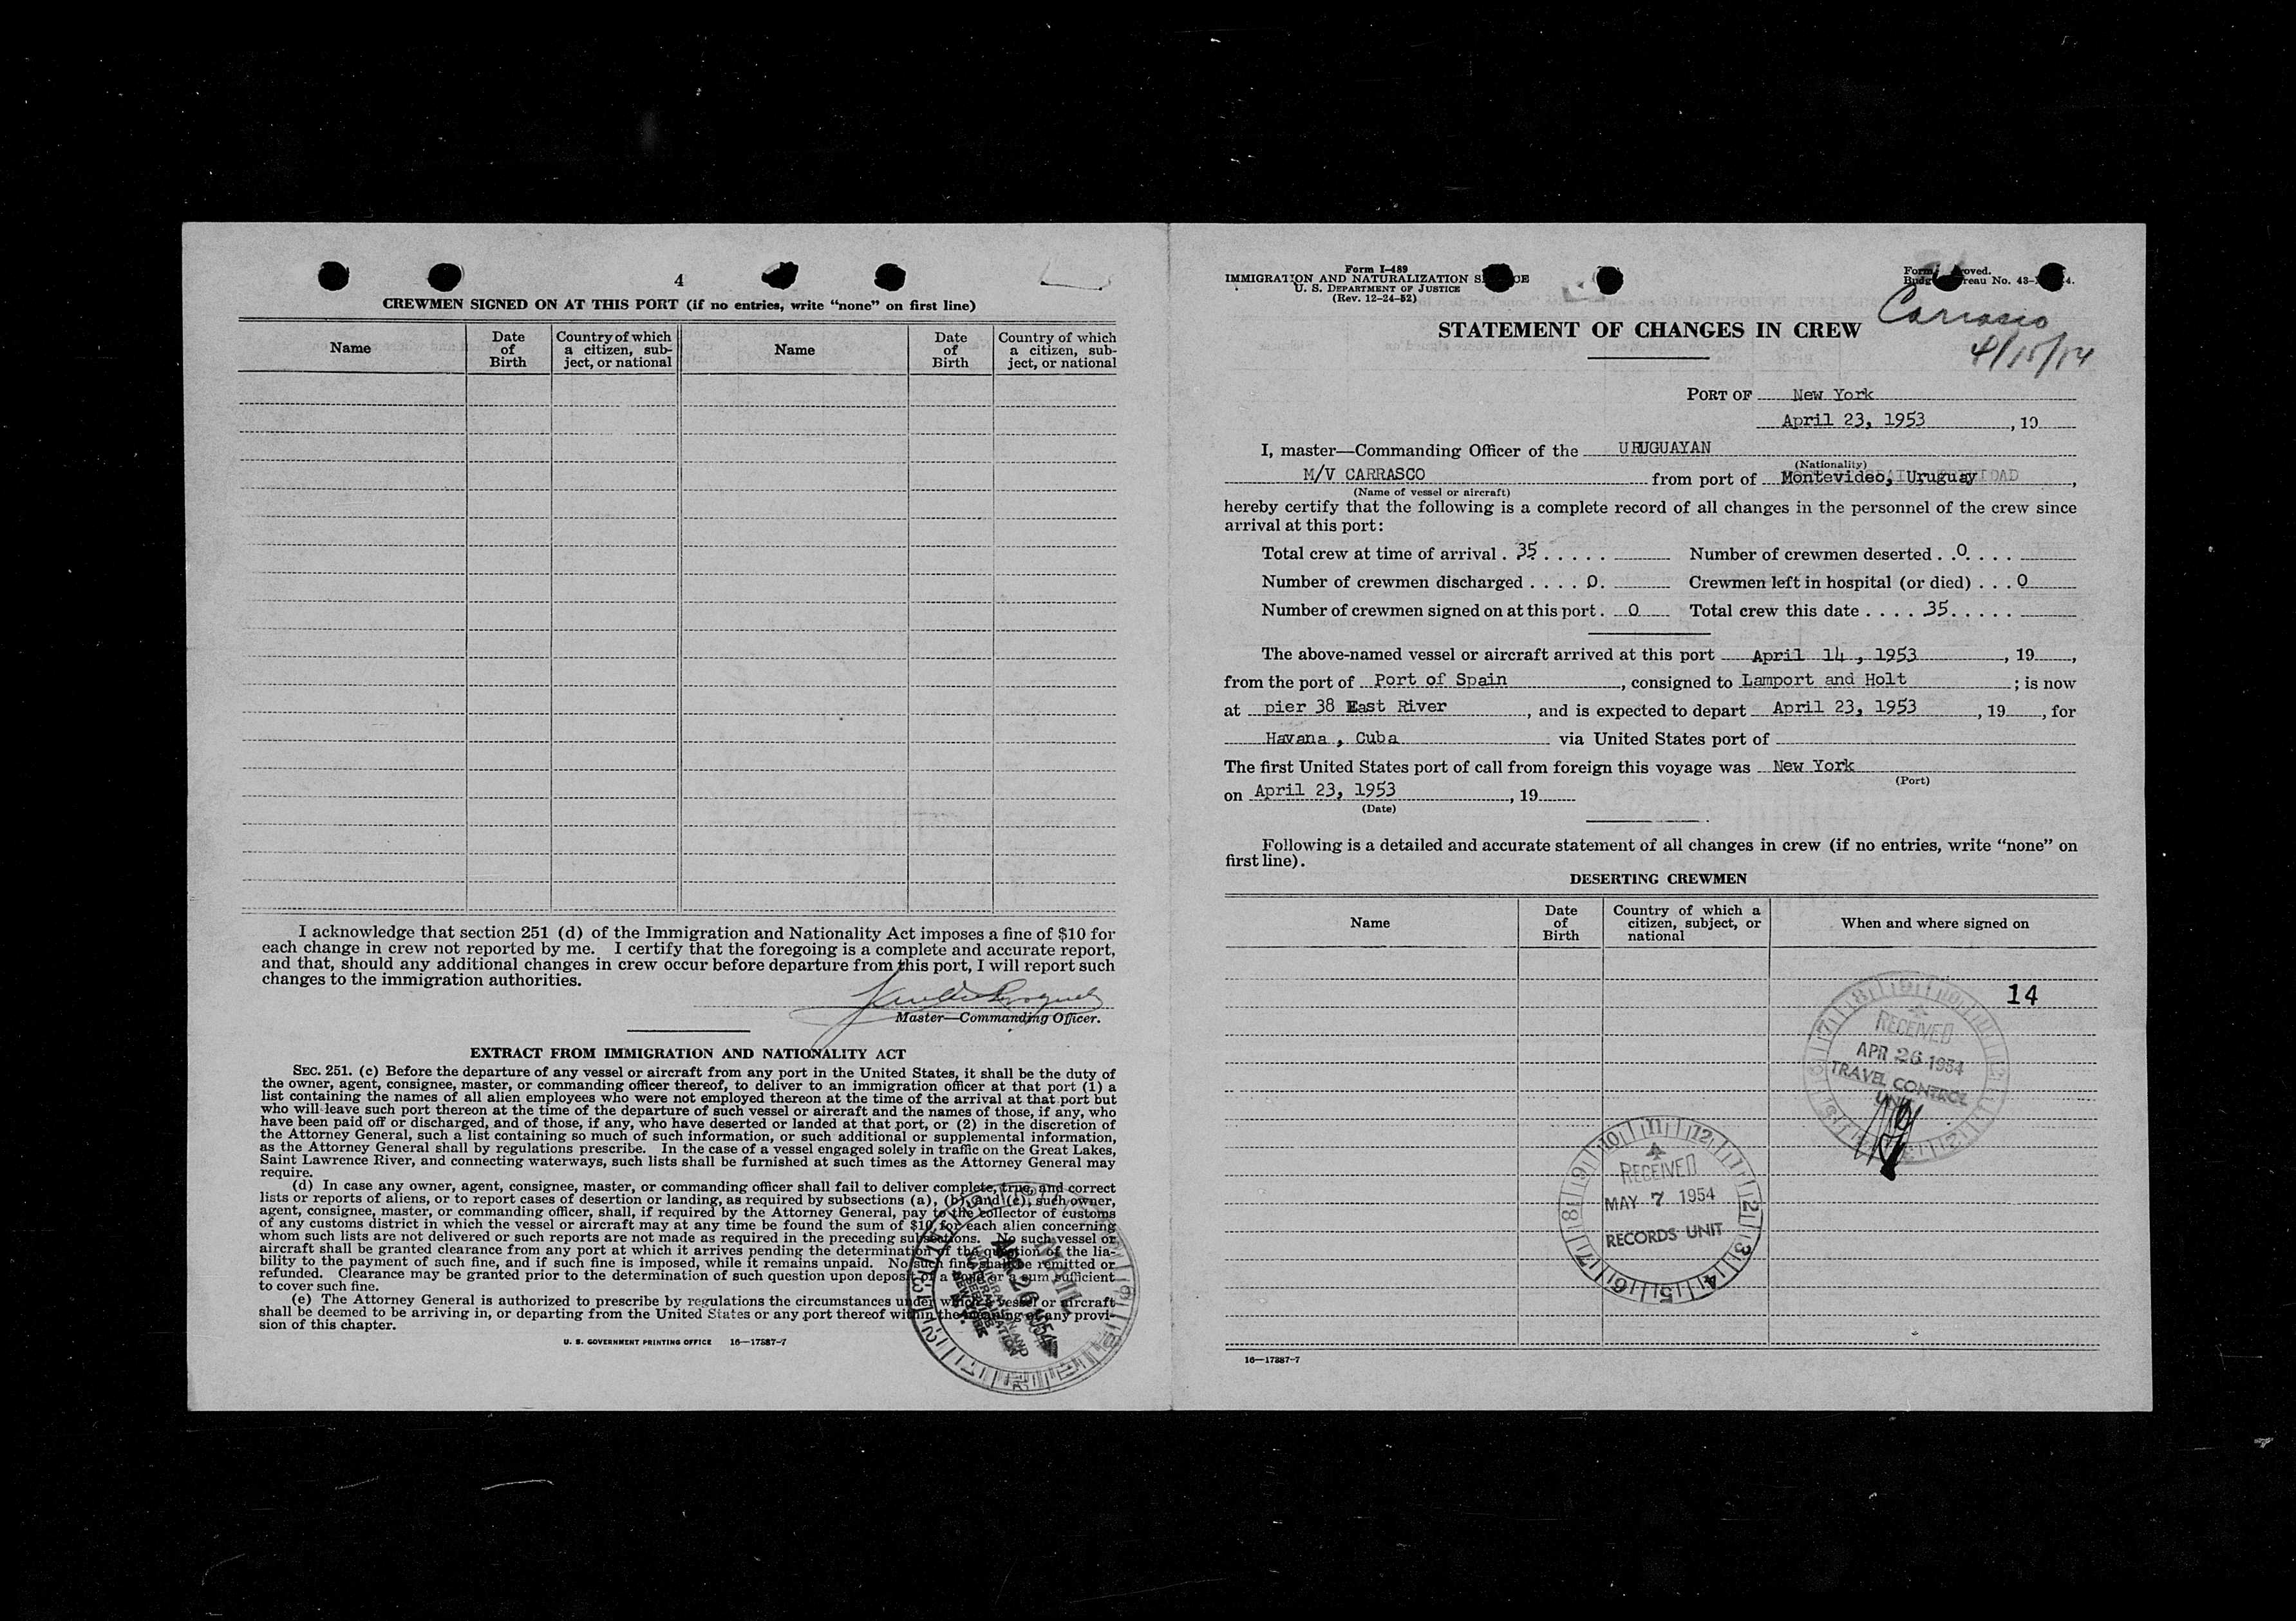 4
CREWMEN SIGNED ON AT THIS PORT (if no entries, write “none” on first line)
Name
Date of Birth
Country of which a citizen, sub-ject, or national
Name
Date of Birth
Country of which a citizen, sub-ject, or national
I acknowledge that section 251 (d) of the Immigration and Nationality Act imposes a fine of $10 for
each change in crew not reported by me. I certify that the foregoing is a complete and accurate report,
and that, should any additional changes in crew occur before departure from this port, I will report such
changes to the immigration authorities.
Master—Commanding Officer.
EXTRACT FROM IMMIGRATION AND NATIONALITY ACT
SEC. 251. (c) Before the departure of any vessel or aircraft from any port in the United States, it shall be the duty of
the owner, agent, consignee, master, or commanding officer thereof, to deliver to an immigration officer at that port (1) a
list containing the names of all alien employees who were not employed thereon at the time of the arrival at that port but
who will leave such port thereon at the time of the departure of such vessel or aircraft and the names of those, if any, who
have been paid off or discharged, and of those, if any, who have deserted or landed at that port, or (2) in the discretion of
the Attorney General, such a list containing so much of such information, or such additional or supplemental information,
as the Attorney General shall by regulations prescribe. In the case of a vessel engaged solely in traffic on the Great Lakes,
Saint Lawrence River, and connecting waterways, such lists shall be furnished at such times as the Attorney General may
require.
(d) In case any owner, agent, consignee, master, or commanding officer shall fail to deliver complete, true, and correct
lists or reports of aliens, or to report cases of desertion or landing, as required by subsections (a), (b), and (c), such owner,
agent, consignee, master, or commanding officer, shall, if required by the Attorney General, pay to the collector of customs
of any customs district in which the vessel or aircraft may at any time be found the sum of $10 for each alien concerning
whom such lists are not delivered or such reports are not made as required in the preceding subsections. No such vessel or
aircraft shall be granted clearance from any port at which it arrives pending the determination of the question of the lia-
bility to the payment of such fine, and if such fine is imposed, while it remains unpaid. No such fine shall be remitted or
refunded. Clearance may be granted prior to the determination of such question upon deposit of a bond or a sum sufficient
to cover such fine.
(e) The Attorney General is authorized to prescribe by regulations the circumstances under which a vessel or aircraft
shall be deemed to be arriving in, or departing from the United States or any port thereof within the meaning of any provi-
sion of this chapter.
U. S. GOVERNMENT PRINTING OFFICE 16—17887-7
Form I-489
IMMIGRATION AND NATURALIZATION
U. S. DEPARTMENT OF JUSTICE
(Rev. 12-24-52)
Carrasco
STATEMENT OF CHANGES IN CREW
PORT OF New York
April 23, 1953, 19
I, master—Commanding Officer of the URUGUAYAN
(Nationality)
M/V CARRASCO from port of Montevideo, Uruguay,
(Name of vessel or aircraft)
hereby certify that the following is a complete record of all changes in the personnel of the crew since
arrival at this port:
Total crew at time of arrival . 35 . . . . . Number of crewmen deserted . . 0 . . . .
Number of crewmen discharged . . . . 0. Crewmen left in hospital (or died) . . . 0
Number of crewmen signed on at this port . 0 Total crew this date . . . . 35 . . . . .
The above-named vessel or aircraft arrived at this port April 14, 1953, 19,
from the port of Port of Spain, consigned to Lamport and Holt; is now
at pier 38 East River, and is expected to depart April 23, 1953, 19, for
Havana , Cuba via United States port of
The first United States port of call from foreign this voyage was New York
(Port)
on April 23, 1953, 19
(Date)
Following is a detailed and accurate statement of all changes in crew (if no entries, write “none” on
first line).
DESERTING CREWMEN
Name
Date of Birth
Country of which a citizen, subject, or national
When and where signed on
14
RECEIVED
APR 26 1954
TRAVEL CONTROL
UNIT
RECEIVED
MAY 7 1954
RECORDS UNIT
16—17887-7